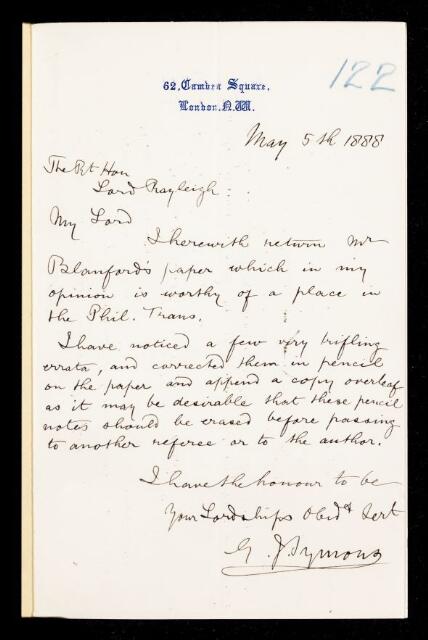 122
62, Camden Square,
London, N.W.
May 5th 1888
The Rt Hon
Lord Rayleigh:
My Lord
I herewith return Mr
Blanford's paper which in my
opinion is worthy of a place in
the Phil. Trans.
I have noticed a few very trifling
errata, and corrected them in pencil
on the paper and append a copy overleaf
as it may be desirable that these pencil
notes should be erased before passing
to another referee or to the author.
I have the honour to be
Your Lordships Obedt Sert
G. J. Symons